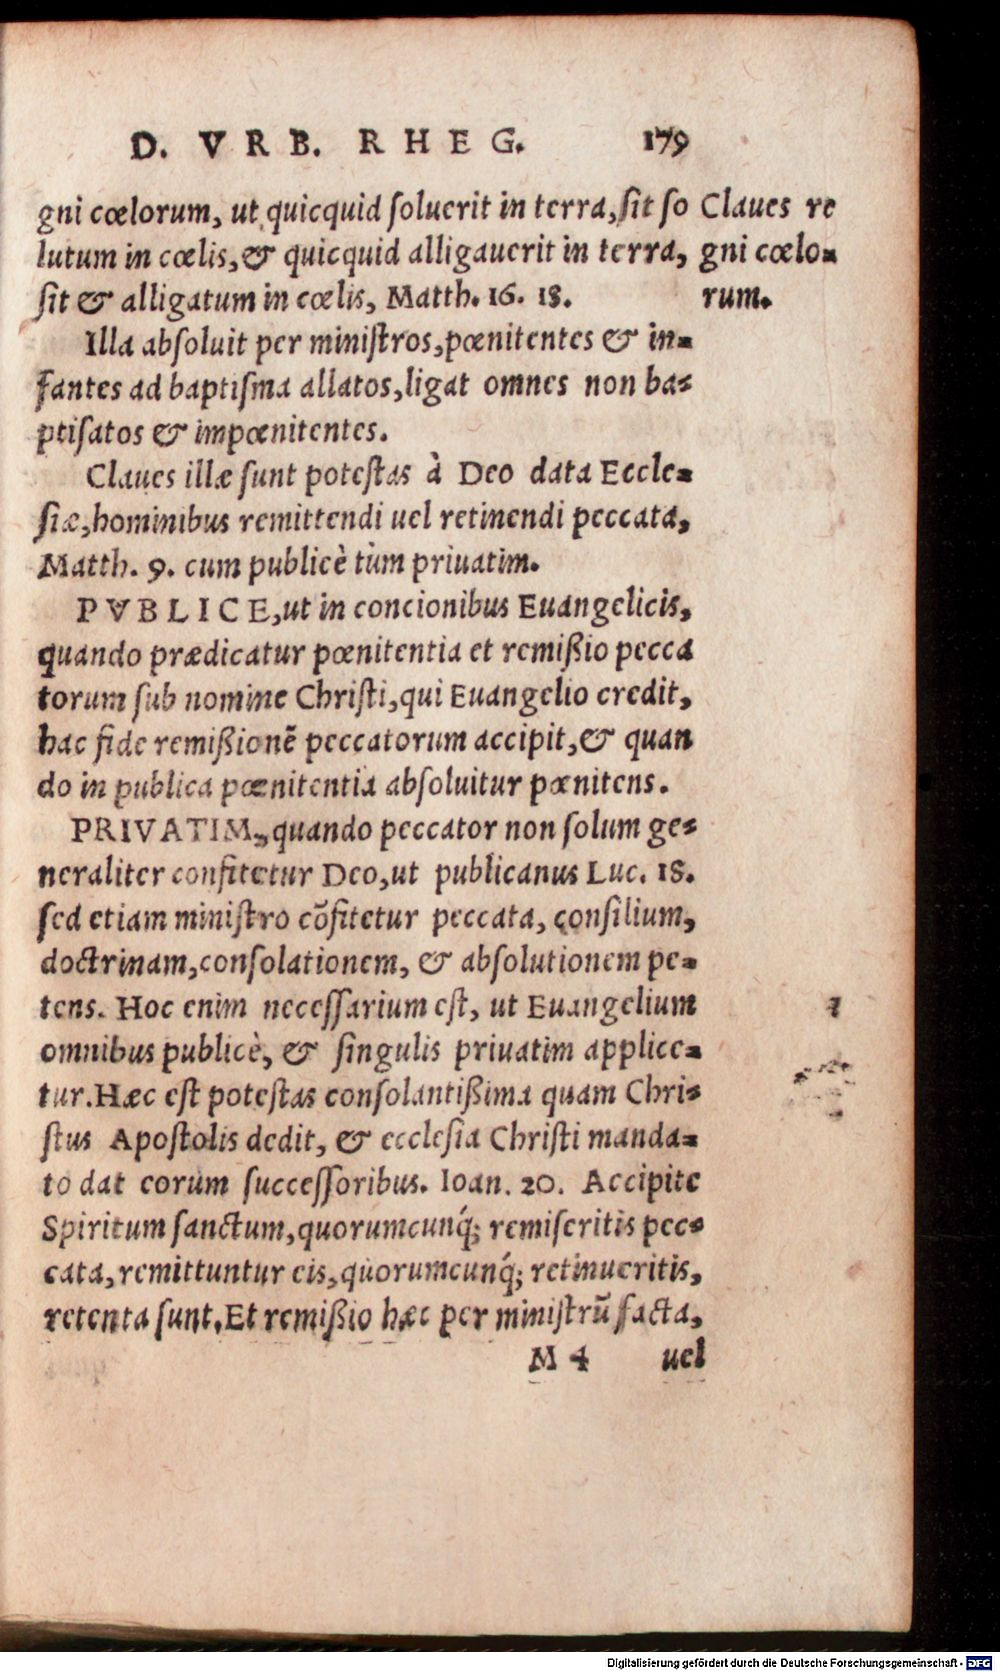 D. VRB. RHEG. 179
gni cœlorum, ut quicquid soluerit in terra, sit so
lutum in cœlis, & quicquid alligauerit in terra,
sit & alligatum in cœlis, Matth. 16. 18.
Claues re
gni cœlo-
rum.
Illa absoluit per ministros, pœnitentes & in-
fantes ad baptisma allatos, ligat omnes non ba-
ptisatos & impœnitentes.
Claues illæ sunt potestas à Deo data Eccle-
siæ, hominibus remittendi uel retinendi peccata,
Matth. 9. cum publicè tùm priuatim.
PVBLICE, ut in concionibus Euangelicis,
quando prædicatur pœnitentia et remißio pecca
torum sub nomine Christi, qui Euangelio credit,
hac fide remißionẽ peccatorum accipit, & quan
do in publica pœnitentia absoluitur pœnitens.
PRIVATIM, quando peccator non solum ge-
neraliter confitetur Deo, ut publicanus Luc. 18.
sed etiam ministro cõfitetur peccata, consilium,
doctrinam, consolationem, & absolutionem pe-
tens. Hoc enim necessarium est, ut Euangelium
omnibus publicè, & singulis priuatim applice-
tur. Hæc est potestas consolantißima quam Chri-
stus Apostolis dedit, & ecclesia Christi manda-
to dat eorum successoribus. Ioan. 20. Accipite
Spiritum sanctum, quorumcunq́; remiseritis pec-
cata, remittuntur eis, quorumcunq́; retinueritis,
retenta sunt. Et remißio hæc per ministrũ facta,
M 4 uel
Digitalisierung gefördert durch die Deutsche Forschungsgemeinschaft - DFG